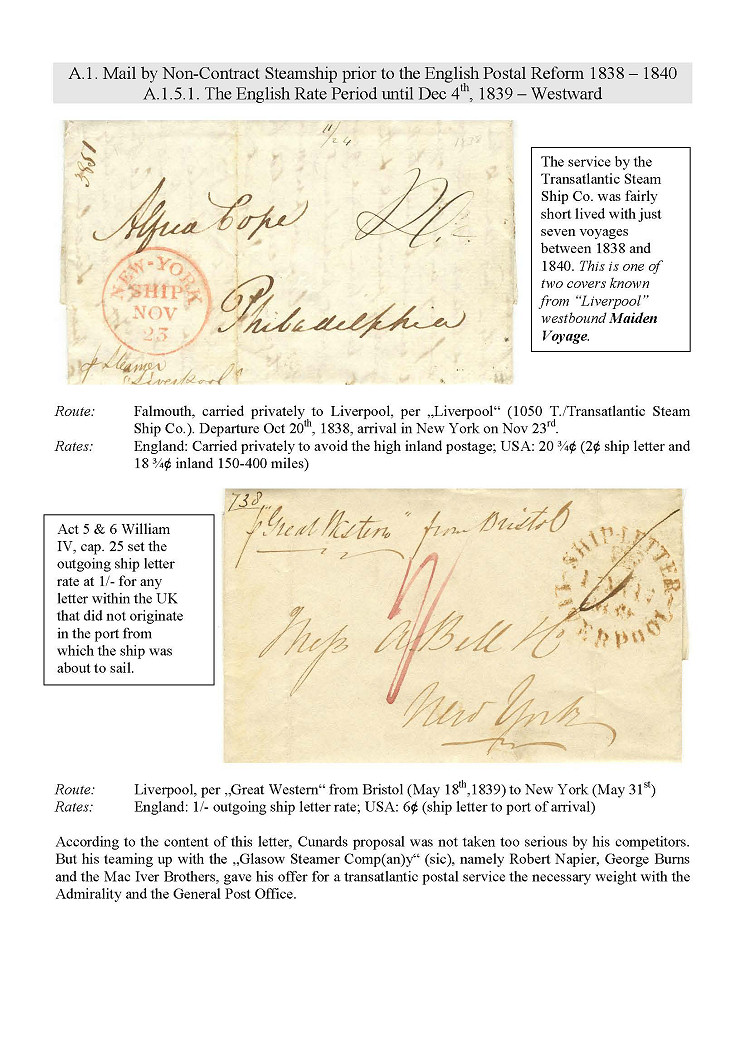 A.1. Mail by Non-Contract Steamship prior to the English Postal Reform 1838 – 1840
A.1.5.1. The English Rate Period until Dec 4th, 1839 – Westward
11/24
1838
3851
Alfred Cope
NEW-YORK
SHIP
NOV
23
Philadelphia
p Steamer
"Liverpool"
The service by the
Transatlantic Steam
Ship Co. was fairly
short lived with just
seven voyages
between 1838 and
1840. This is one of
two covers known
from “Liverpool”
westbound Maiden
Voyage.
Route: Falmouth, carried privately to Liverpool, per „Liverpool“ (1050 T./Transatlantic Steam
Ship Co.). Departure Oct 20th, 1838, arrival in New York on Nov 23rd.
Rates: England: Carried privately to avoid the high inland postage; USA: 20 ¾¢ (2¢ ship letter and
18 ¾¢ inland 150-400 miles)
Act 5 & 6 William
IV, cap. 25 set the
outgoing ship letter
rate at 1/- for any
letter within the UK
that did not originate
in the port from
which the ship was
about to sail.
738
p "Great Western" from Bristol
SHIP-LETTER
LIVERPOOL
Messrs A. Bell & Co
New York
Route: Liverpool, per „Great Western“ from Bristol (May 18th,1839) to New York (May 31st)
Rates: England: 1/- outgoing ship letter rate; USA: 6¢ (ship letter to port of arrival)
According to the content of this letter, Cunards proposal was not taken too serious by his competitors.
But his teaming up with the „Glasow Steamer Comp(an)y“ (sic), namely Robert Napier, George Burns
and the Mac Iver Brothers, gave his offer for a transatlantic postal service the necessary weight with the
Admirality and the General Post Office.